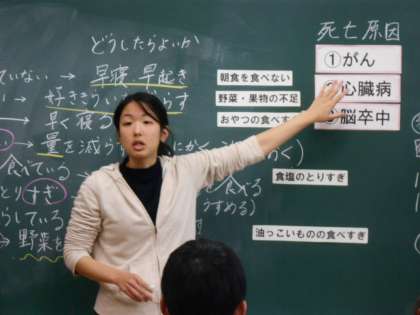 どうしたらよいか
死亡原因
①がん
心臓病
脳卒中
朝食を食べない
野菜・果物の不足
おやつの食べす
食塩のとりすぎ
油っこいものの食べすぎ
ていない → 早寝・早起き
→ 好ききらい
らす
→ 早く寝る
→ 量を減ら
食べている
食べる
とりすぎ
うすめる)
らしている
→ 野菜を